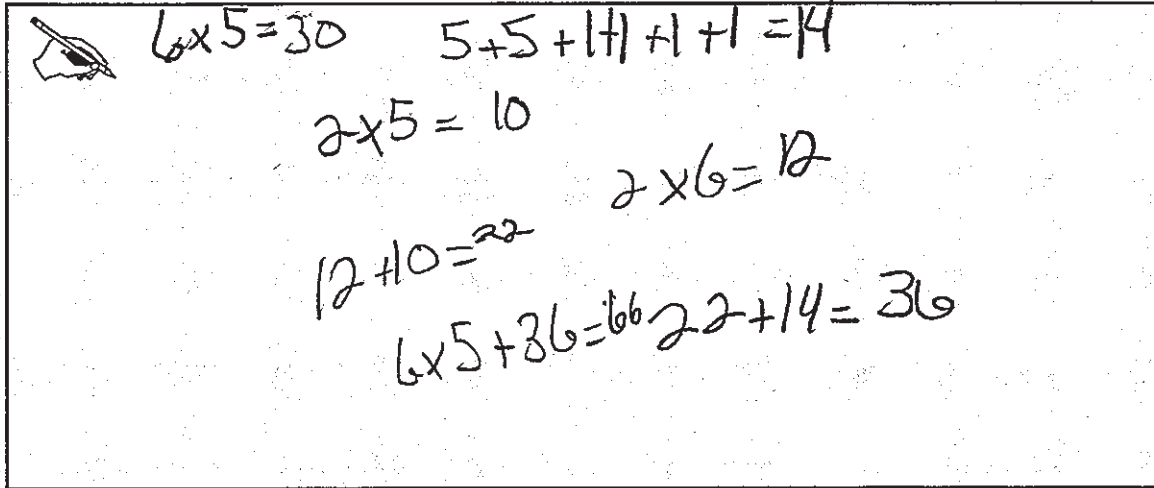 6x5=30 5+5+1+1+1+1=14
2x5=10
2x6=12
12+10=22
6x5+36=66 22+14=36